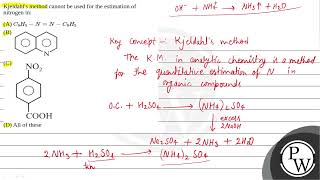 Kjeldahl's method cannot be used for the estimation of
nitrogen in:
(A) C₆H₅ – N = N – C₆H₅
(B)
N
(C)
NO₂
COOH
(D) All of these
OH⁻ + NH₄⁺ → NH₃↑ + H₂O
Key Concept - Kjeldahl's method
The K.M. in analytic chemistry is a method
for the quantitative estimation of N in
organic compounds
O.C. + H₂SO₄ → (NH₄)₂SO₄
↓ excess
2NaOH
Na₂SO₄ + 2NH₃ + 2H₂O
2NH₃ + H₂SO₄ → (NH₄)₂SO₄
PW